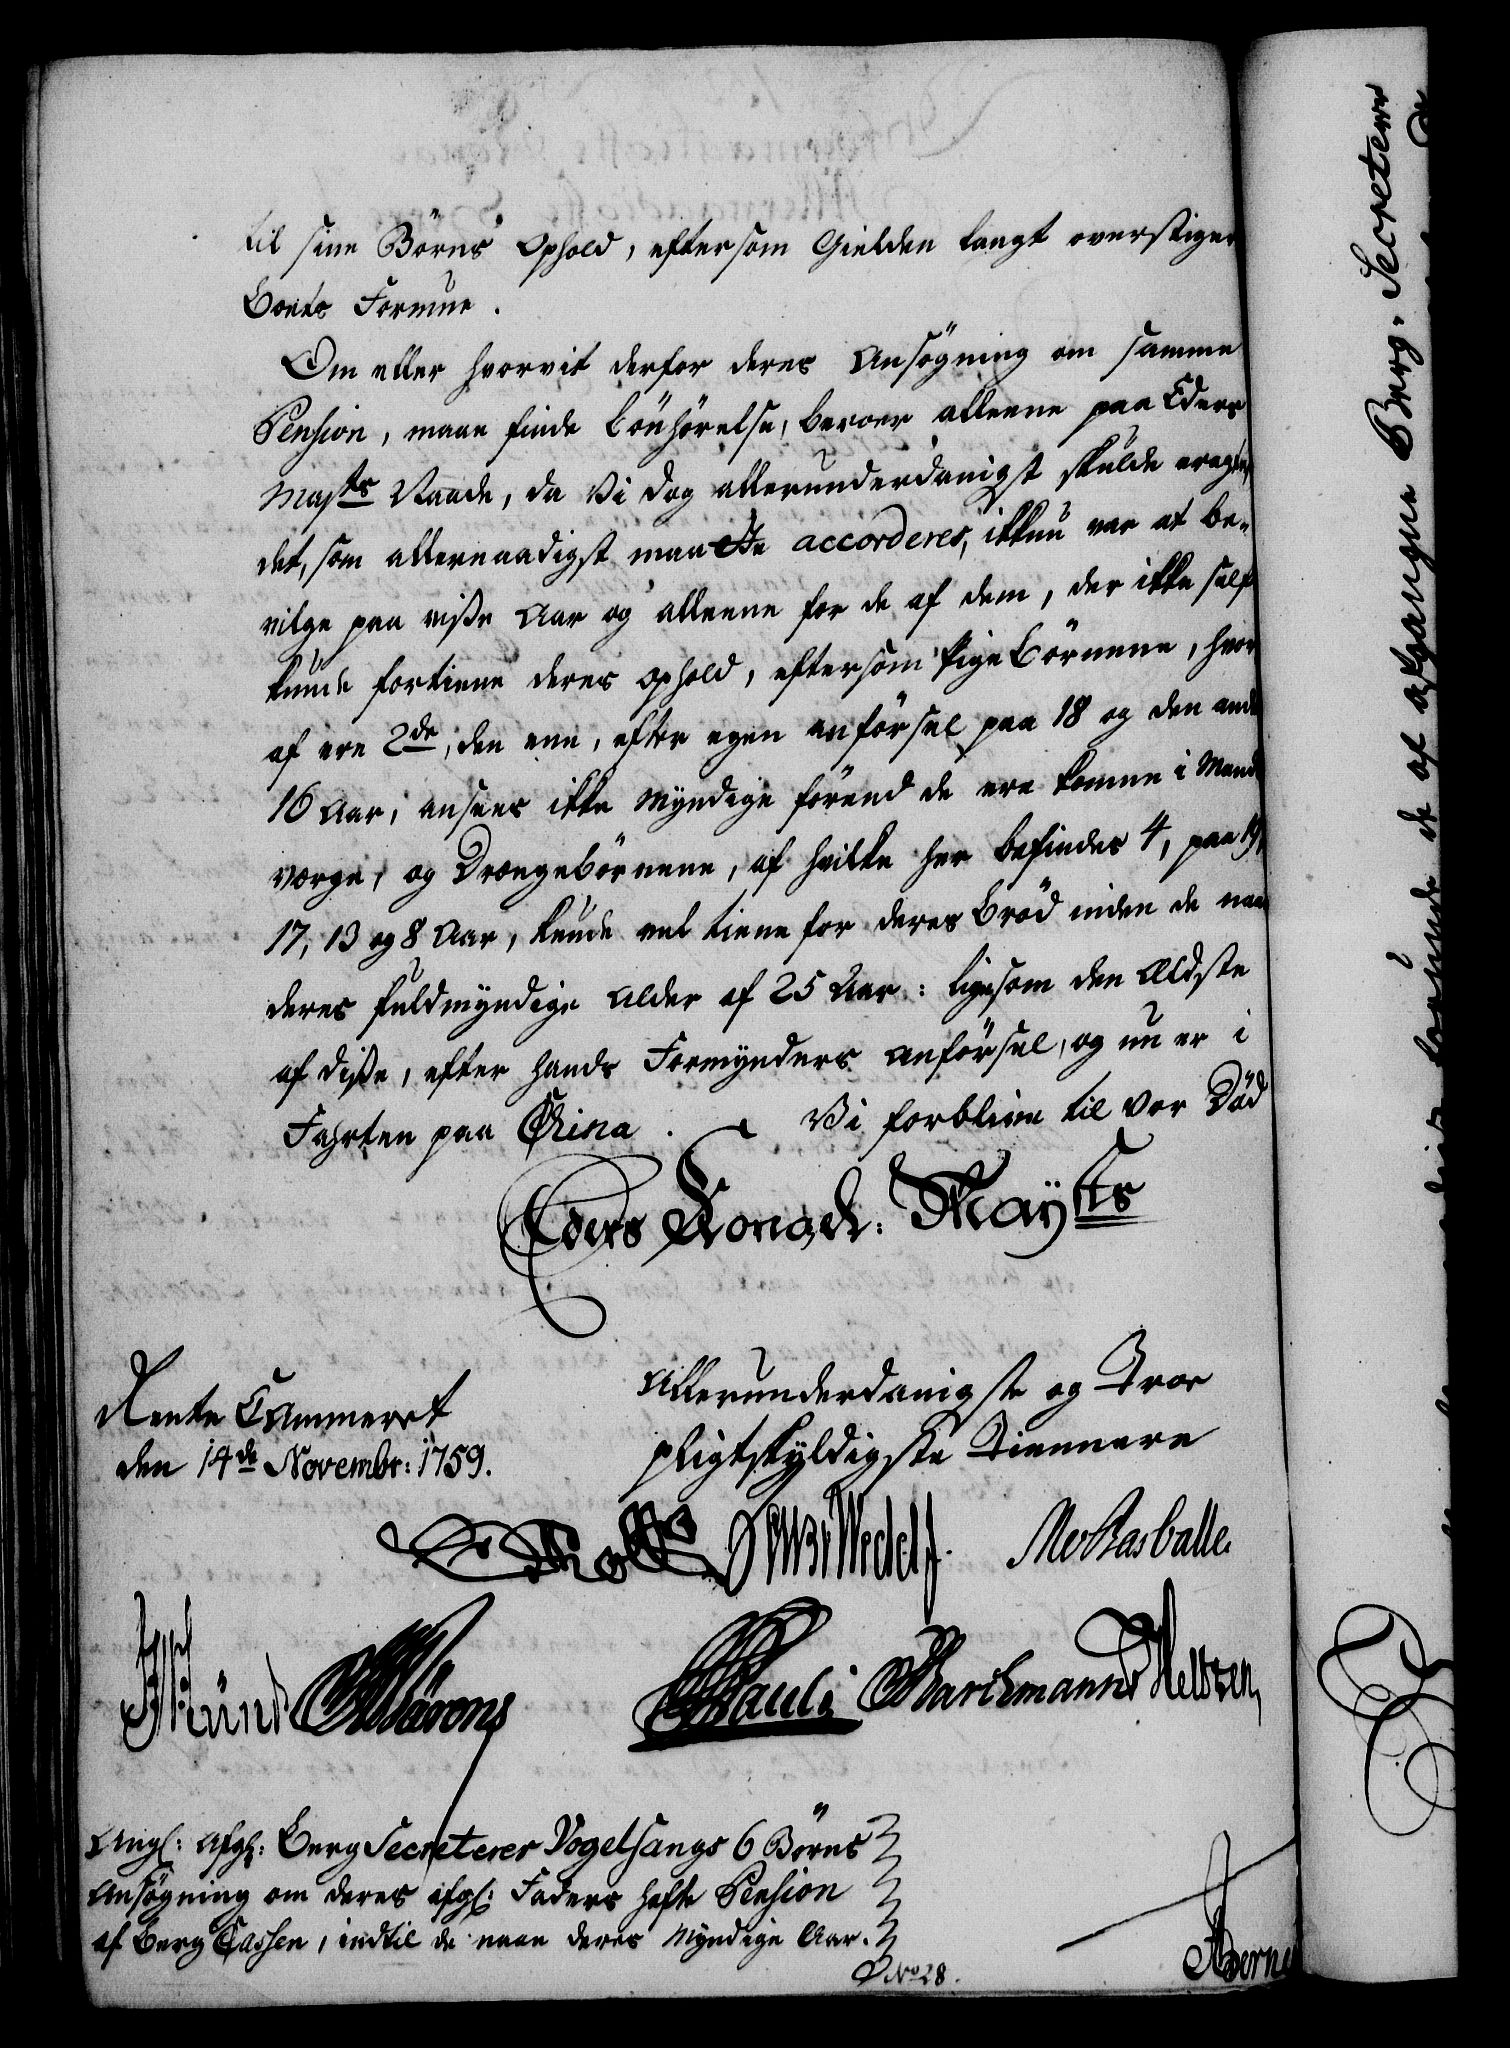 til sine Börns Ophold, eftersom Gielden langt overstiger
Boets Formue.
Om eller hvorvit derfor deres Ansögning om samme
Pension, maae finde bönhörelse, beroer alleene paa Eders
Mayts Naade, da Vi dog allerunderdanigst skulde eragte
det, som allernaadigst maatte accorderes, ikkun var at be-
vilge paa visse Aar og alleene for de af dem, der ikke self
kunde fortiene deres ophold, eftersom Pige Börnene, hvor
af ere 2de, den ene, efter egen anförsel paa 18 og den and
16 Aar, ansees ikke Myndige förend de ere komne i Mand
værge, og Drængebörnene, af hvilke her befindes 4, paa 19,
17, 13 og 8 Aar, kunde vel tiene for deres Bröd inden de naae
deres fuldmyndige Alder af 25 Aar: ligesom den Ældste
af disse, efter hands Formynders anförsel, og nu er i
Fahrten paa China. Vi forblive til vor Död
Eders Kongel: Mayts
Rente Cammeret
den 14de Novembr: 1759.
Allerunderdanigste og Troe
pligtskyldigste Tiennere
Wedel
Pauli Marckmann Heltzen
Angl: Afgl: Berg Secreterer Vogelsangs 6 Börns
Ansögning om deres afgl: Faders hafte Pension
af Berg Cassen, indtil de naae deres Myndige Aar.
No 28.
de af afgangne Berg-Secreterer